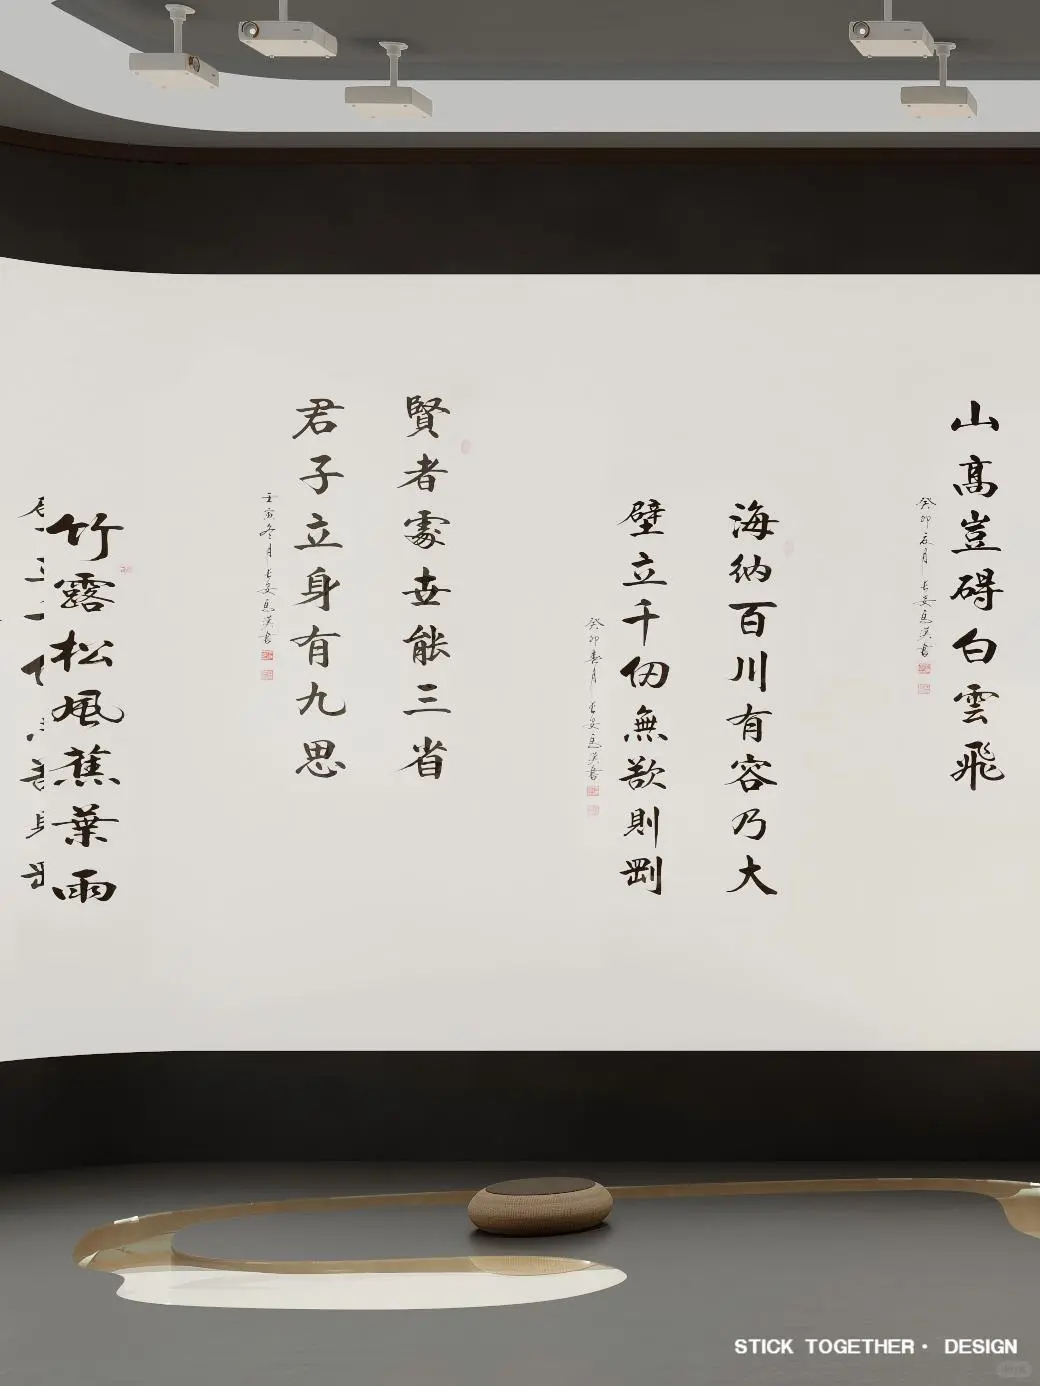 山高豈碍白雲飛
癸卯夏月
海納百川有容乃大
壁立千仞無欲則剛
癸卯春月
賢者處世能三省
君子立身有九思
壬寅冬月
竹露松風蕉葉雨
STICK TOGETHER · DESIGN